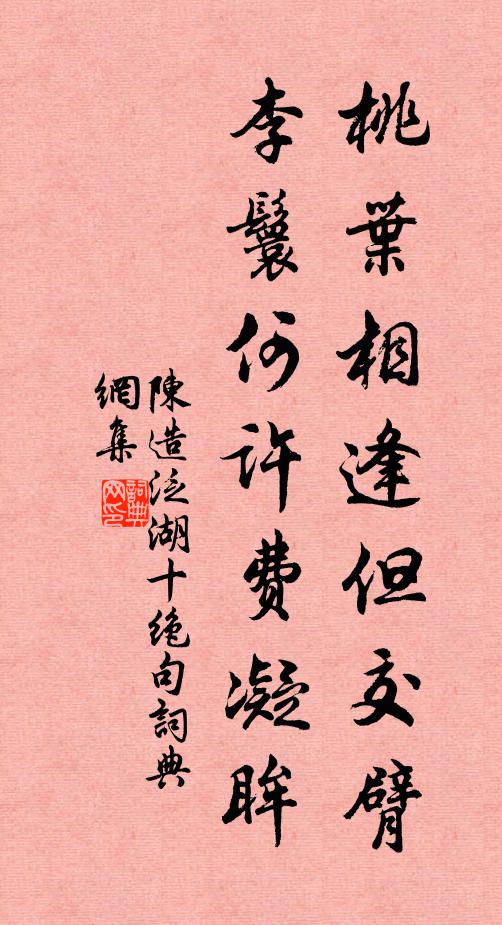 桃葉相逢但交臂
李鬟何許費凝眸
陳造泛湖十絕句詞典
網集
詞典網印